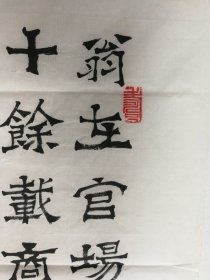 翁在官場
十餘載商